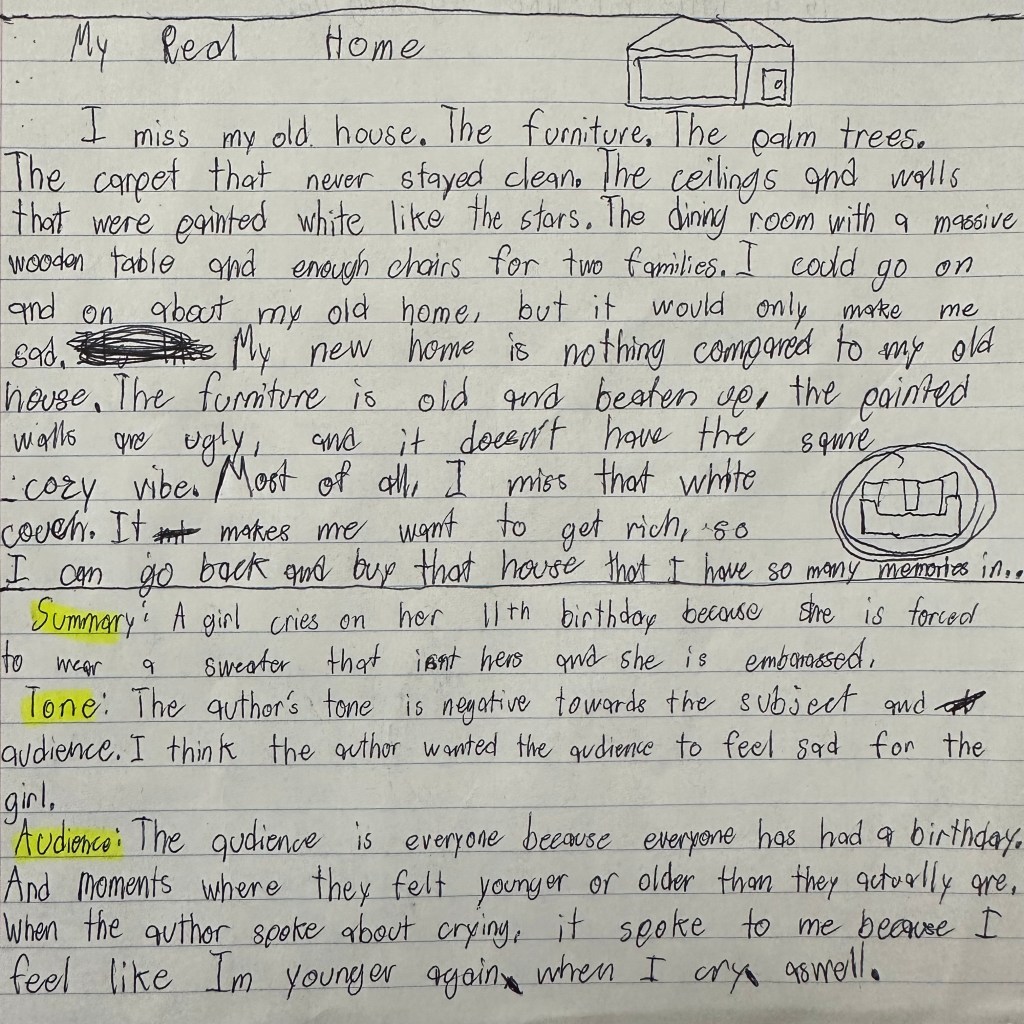 My Real Home
I miss my old house. The furniture. The palm trees.
The carpet that never stayed clean. The ceilings and walls
that were painted white like the stars. The dining room with a massive
wooden table and enough chairs for two families. I could go on
and on about my old home, but it would only make me
sad. My new home is nothing compared to my old
house. The furniture is old and beaten up, the painted
walls are ugly, and it doesn't have the same
cozy vibe. Most of all, I miss that white
couch. It makes me want to get rich, so
I can go back and buy that house that I have so many memories in..
Summary: A girl cries on her 11th birthday because she is forced
to wear a sweater that isnt hers and she is embarassed.
Tone: The author's tone is negative towards the subject and
audience. I think the author wanted the audience to feel sad for the
girl.
Audience: The audience is everyone because everyone has had a birthday.
And moments where they felt younger or older than they actually are.
When the author spoke about crying, it spoke to me because I
feel like Im younger again when I cry aswell.